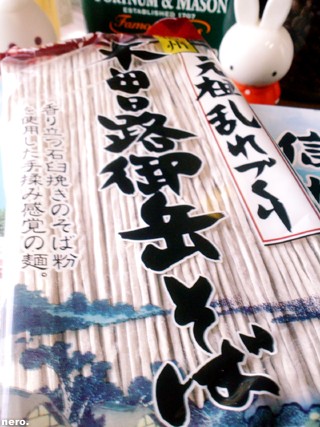 FORTNUM & MASON
ESTABLISHED 1707
Famo
州
元祖乱れづくり
木曽路御岳そば
香り立つ石臼挽きのそば粉
を使用した手揉み感覚の麺。
信
nero.